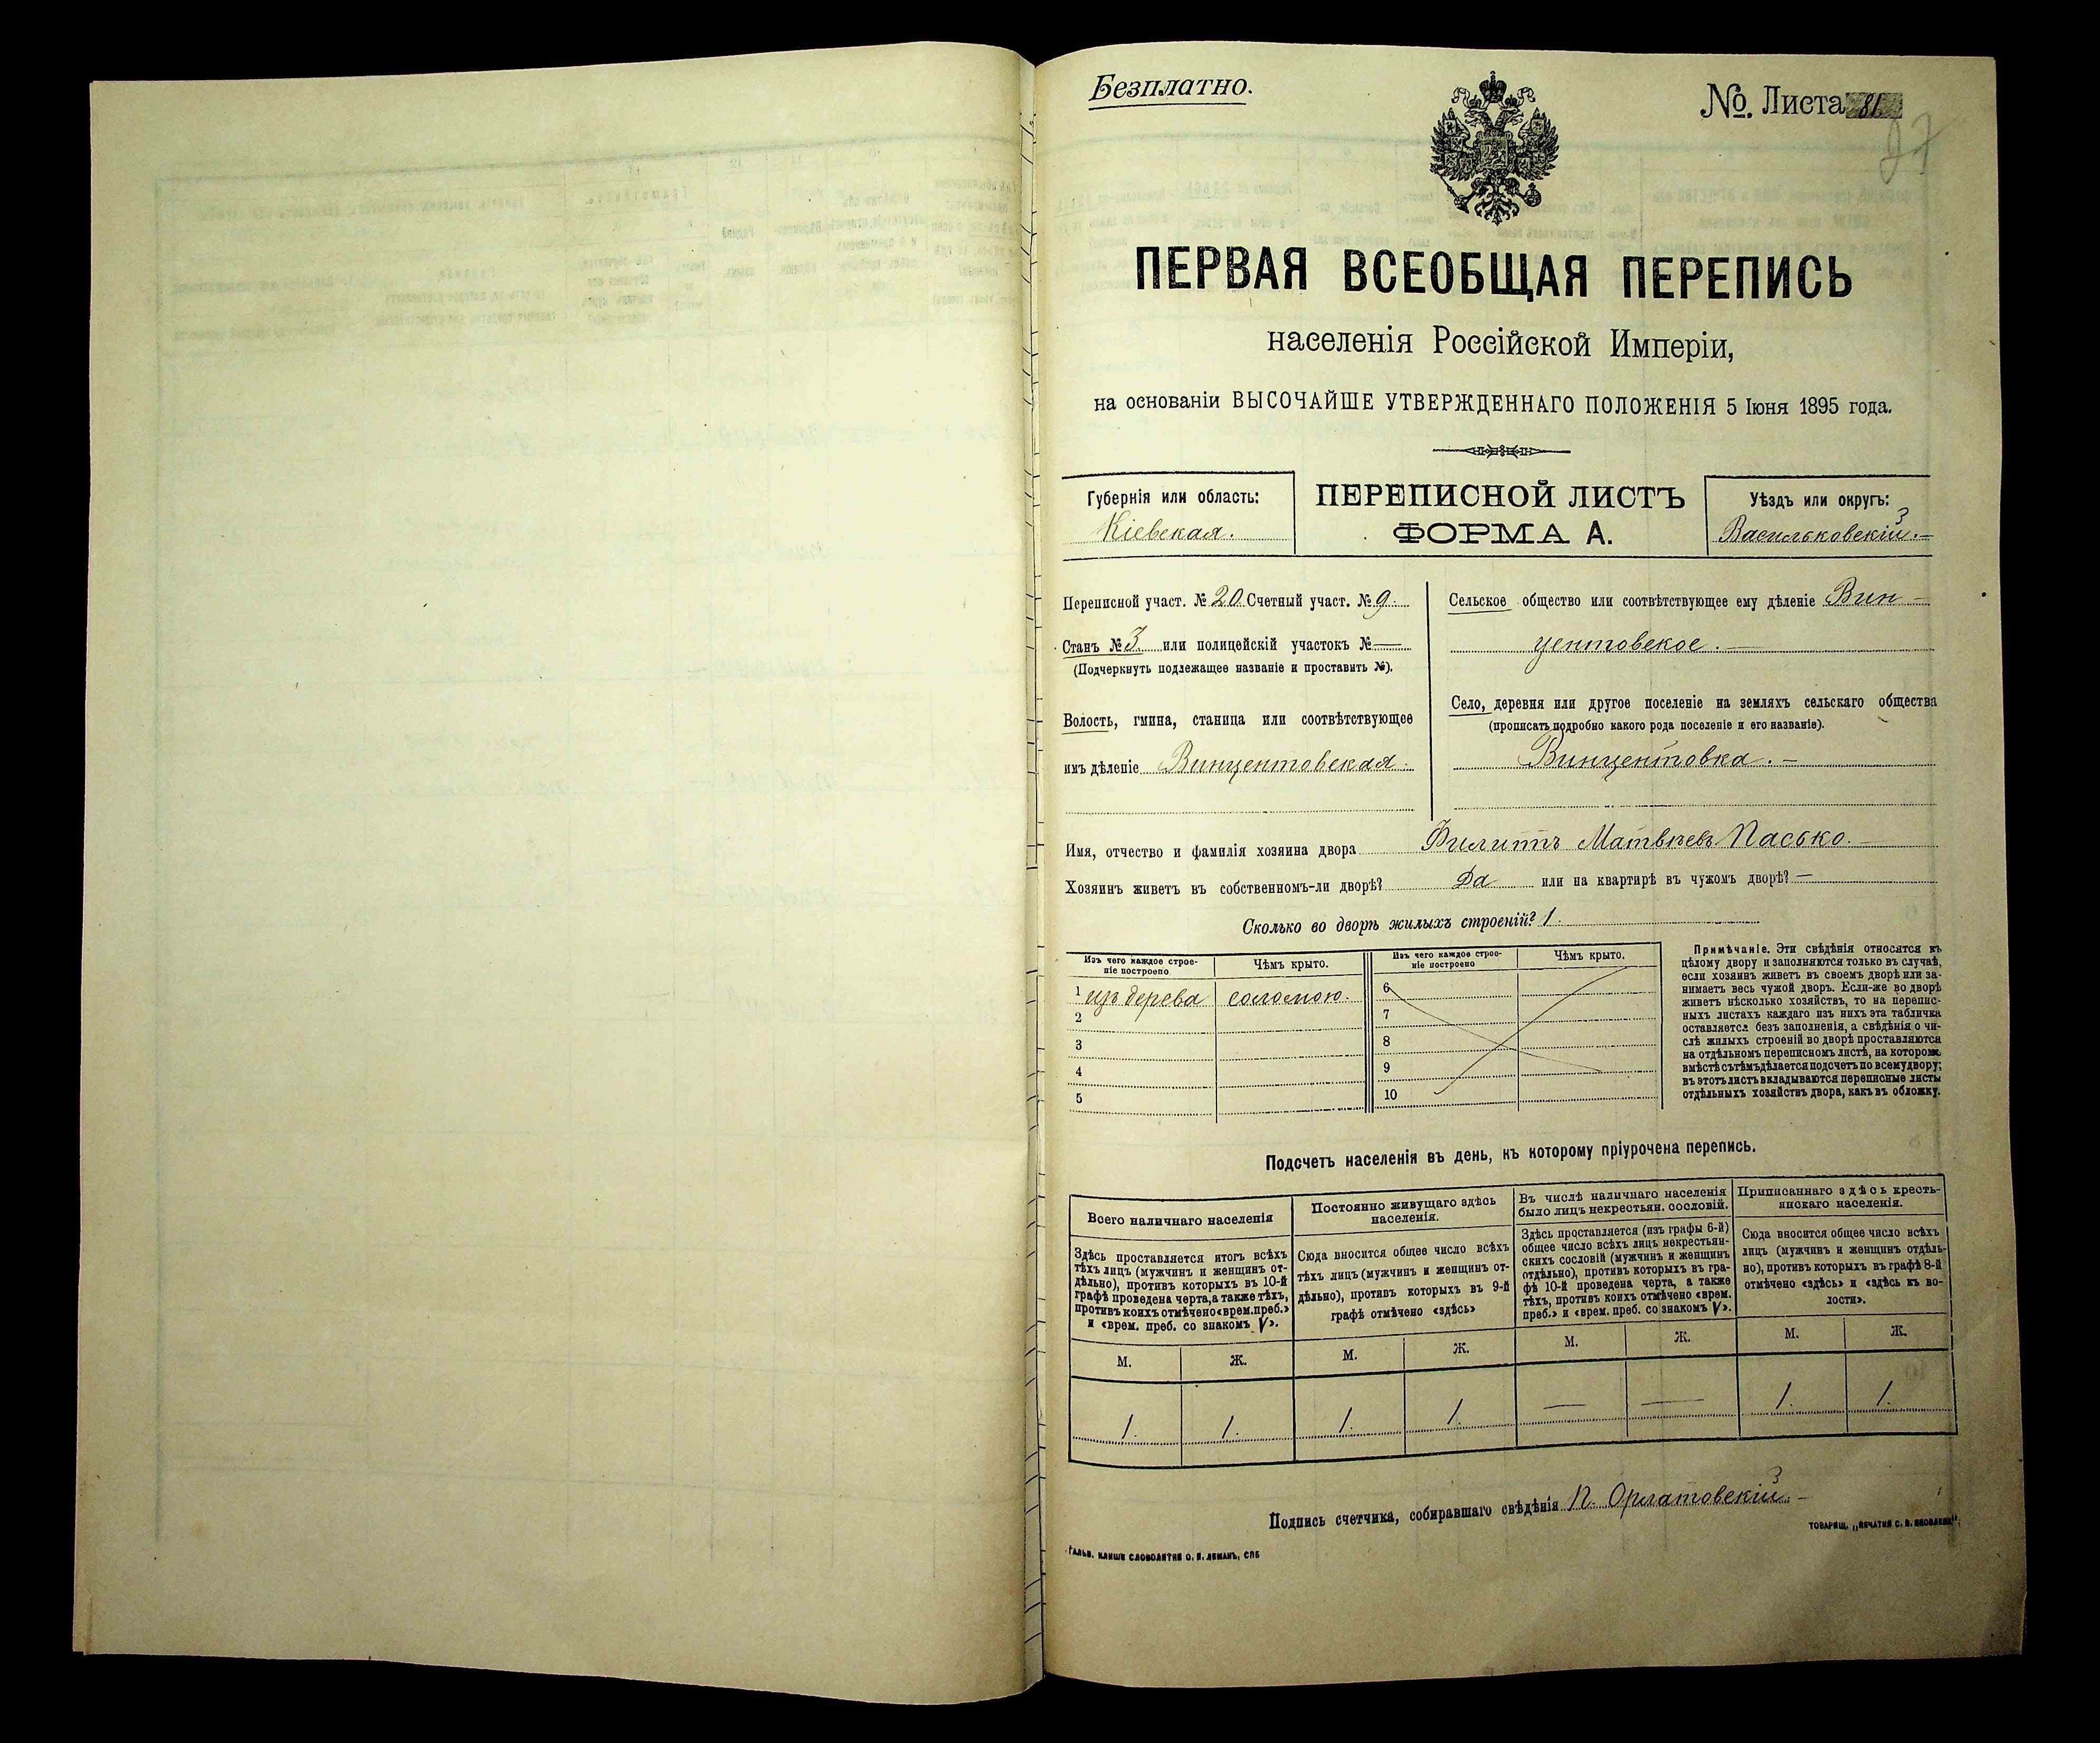 Безплатно.
№ Листа 81.
27
ПЕРВАЯ ВСЕОБЩАЯ ПЕРЕПИСЬ
населенія Россійской Имперіи,
на основаніи ВЫСОЧАЙШЕ УТВЕРЖДЕННАГО ПОЛОЖЕНІЯ 5 Іюня 1895 года.
Губернія или область:
Кіевская.
ПЕРЕПИСНОЙ ЛИСТЪ
ФОРМА А.
Уѣздъ или округъ:
Васильковскій.—
Переписной участ. № 20 Счетный участ. № 9.
Станъ № 3 или полицейскій участокъ № —
(Подчеркнуть подлежащее названіе и проставить №).
Волость, гмина, станица или соотвѣтствующее
имъ дѣленіе Винцентовская.
Сельское общество или соотвѣтствующее ему дѣленіе Вин-
центовское.—
Село, деревня или другое поселеніе на земляхъ сельскаго общества
(прописать подробно какого рода поселеніе и его названіе).
Винцентовка.—
Имя, отчество и фамилія хозяина двора Филиппъ Матвѣевъ Пасько.—
Хозяинъ живетъ въ собственномъ-ли дворѣ? Да или на квартирѣ въ чужомъ дворѣ? —
Сколько во дворѣ жилыхъ строеній? 1.
Изъ чего каждое строе-
ніе построено
Чѣмъ крыто.
Изъ чего каждое строе-
ніе построено
Чѣмъ крыто.
1 изъ дерева соломою.
2
3
4
5
6
7
8
9
10
Примѣчаніе. Эти свѣдѣнія относятся къ
цѣлому двору и заполняются только въ случаѣ,
если хозяинъ живетъ въ своемъ дворѣ или за-
нимаетъ весь чужой дворъ. Если-же во дворѣ
живетъ нѣсколько хозяйствъ, то на перепис-
ныхъ листахъ каждаго изъ нихъ эта табличка
оставляется безъ заполненія, а свѣдѣнія о чи-
слѣ жилыхъ строеній во дворѣ проставляются
на отдѣльномъ переписномъ листѣ, на которомъ
вмѣстѣ съ тѣмъ дѣлается подсчетъ по всему двору;
въ этотъ листъ вкладываются переписные листы
отдѣльныхъ хозяйствъ двора, какъ въ обложку.
Подсчетъ населенія въ день, къ которому пріурочена перепись.
Всего наличнаго населенія
Здѣсь проставляется итогъ всѣхъ
тѣхъ лицъ (мужчинъ и женщинъ от-
дѣльно), противъ которыхъ въ 10-й
графѣ проведена черта, а также тѣхъ,
противъ коихъ отмѣчено «врем. преб.»
и «врем. преб. со знакомъ V».
Постоянно живущаго здѣсь
населенія.
Сюда вносится общее число всѣхъ
тѣхъ лицъ (мужчинъ и женщинъ от-
дѣльно), противъ которыхъ въ 9-й
графѣ отмѣчено «здѣсь»
Въ числѣ наличнаго населенія
было лицъ некрестьян. сословій.
Здѣсь проставляется (изъ графы 6-й)
общее число всѣхъ лицъ некрестьян-
скихъ сословій (мужчинъ и женщинъ
отдѣльно), противъ которыхъ въ гра-
фѣ 10-й проведена черта, а также
тѣхъ, противъ коихъ отмѣчено «врем.
преб.» и «врем. преб. со знакомъ V».
Приписаннаго здѣсь кресть-
янскаго населенія.
Сюда вносится общее число всѣхъ
лицъ (мужчинъ и женщинъ отдѣль-
но), противъ которыхъ въ графѣ 8-й
отмѣчено «здѣсь» и «здѣсь къ во-
лости».
М. Ж. М. Ж. М. Ж. М. Ж.
1. 1. 1. 1. — — 1. 1.
Подпись счетчика, собиравшаго свѣдѣнія П. Орлатовскій.—
ТОВАРИЩ. „ПЕЧАТНЯ С. П. ЯКОВЛЕВА“.
ГАЛЬВ. КЛИШЕ СЛОВОЛИТНИ О. И. ЛЕМАНЪ, СПБ